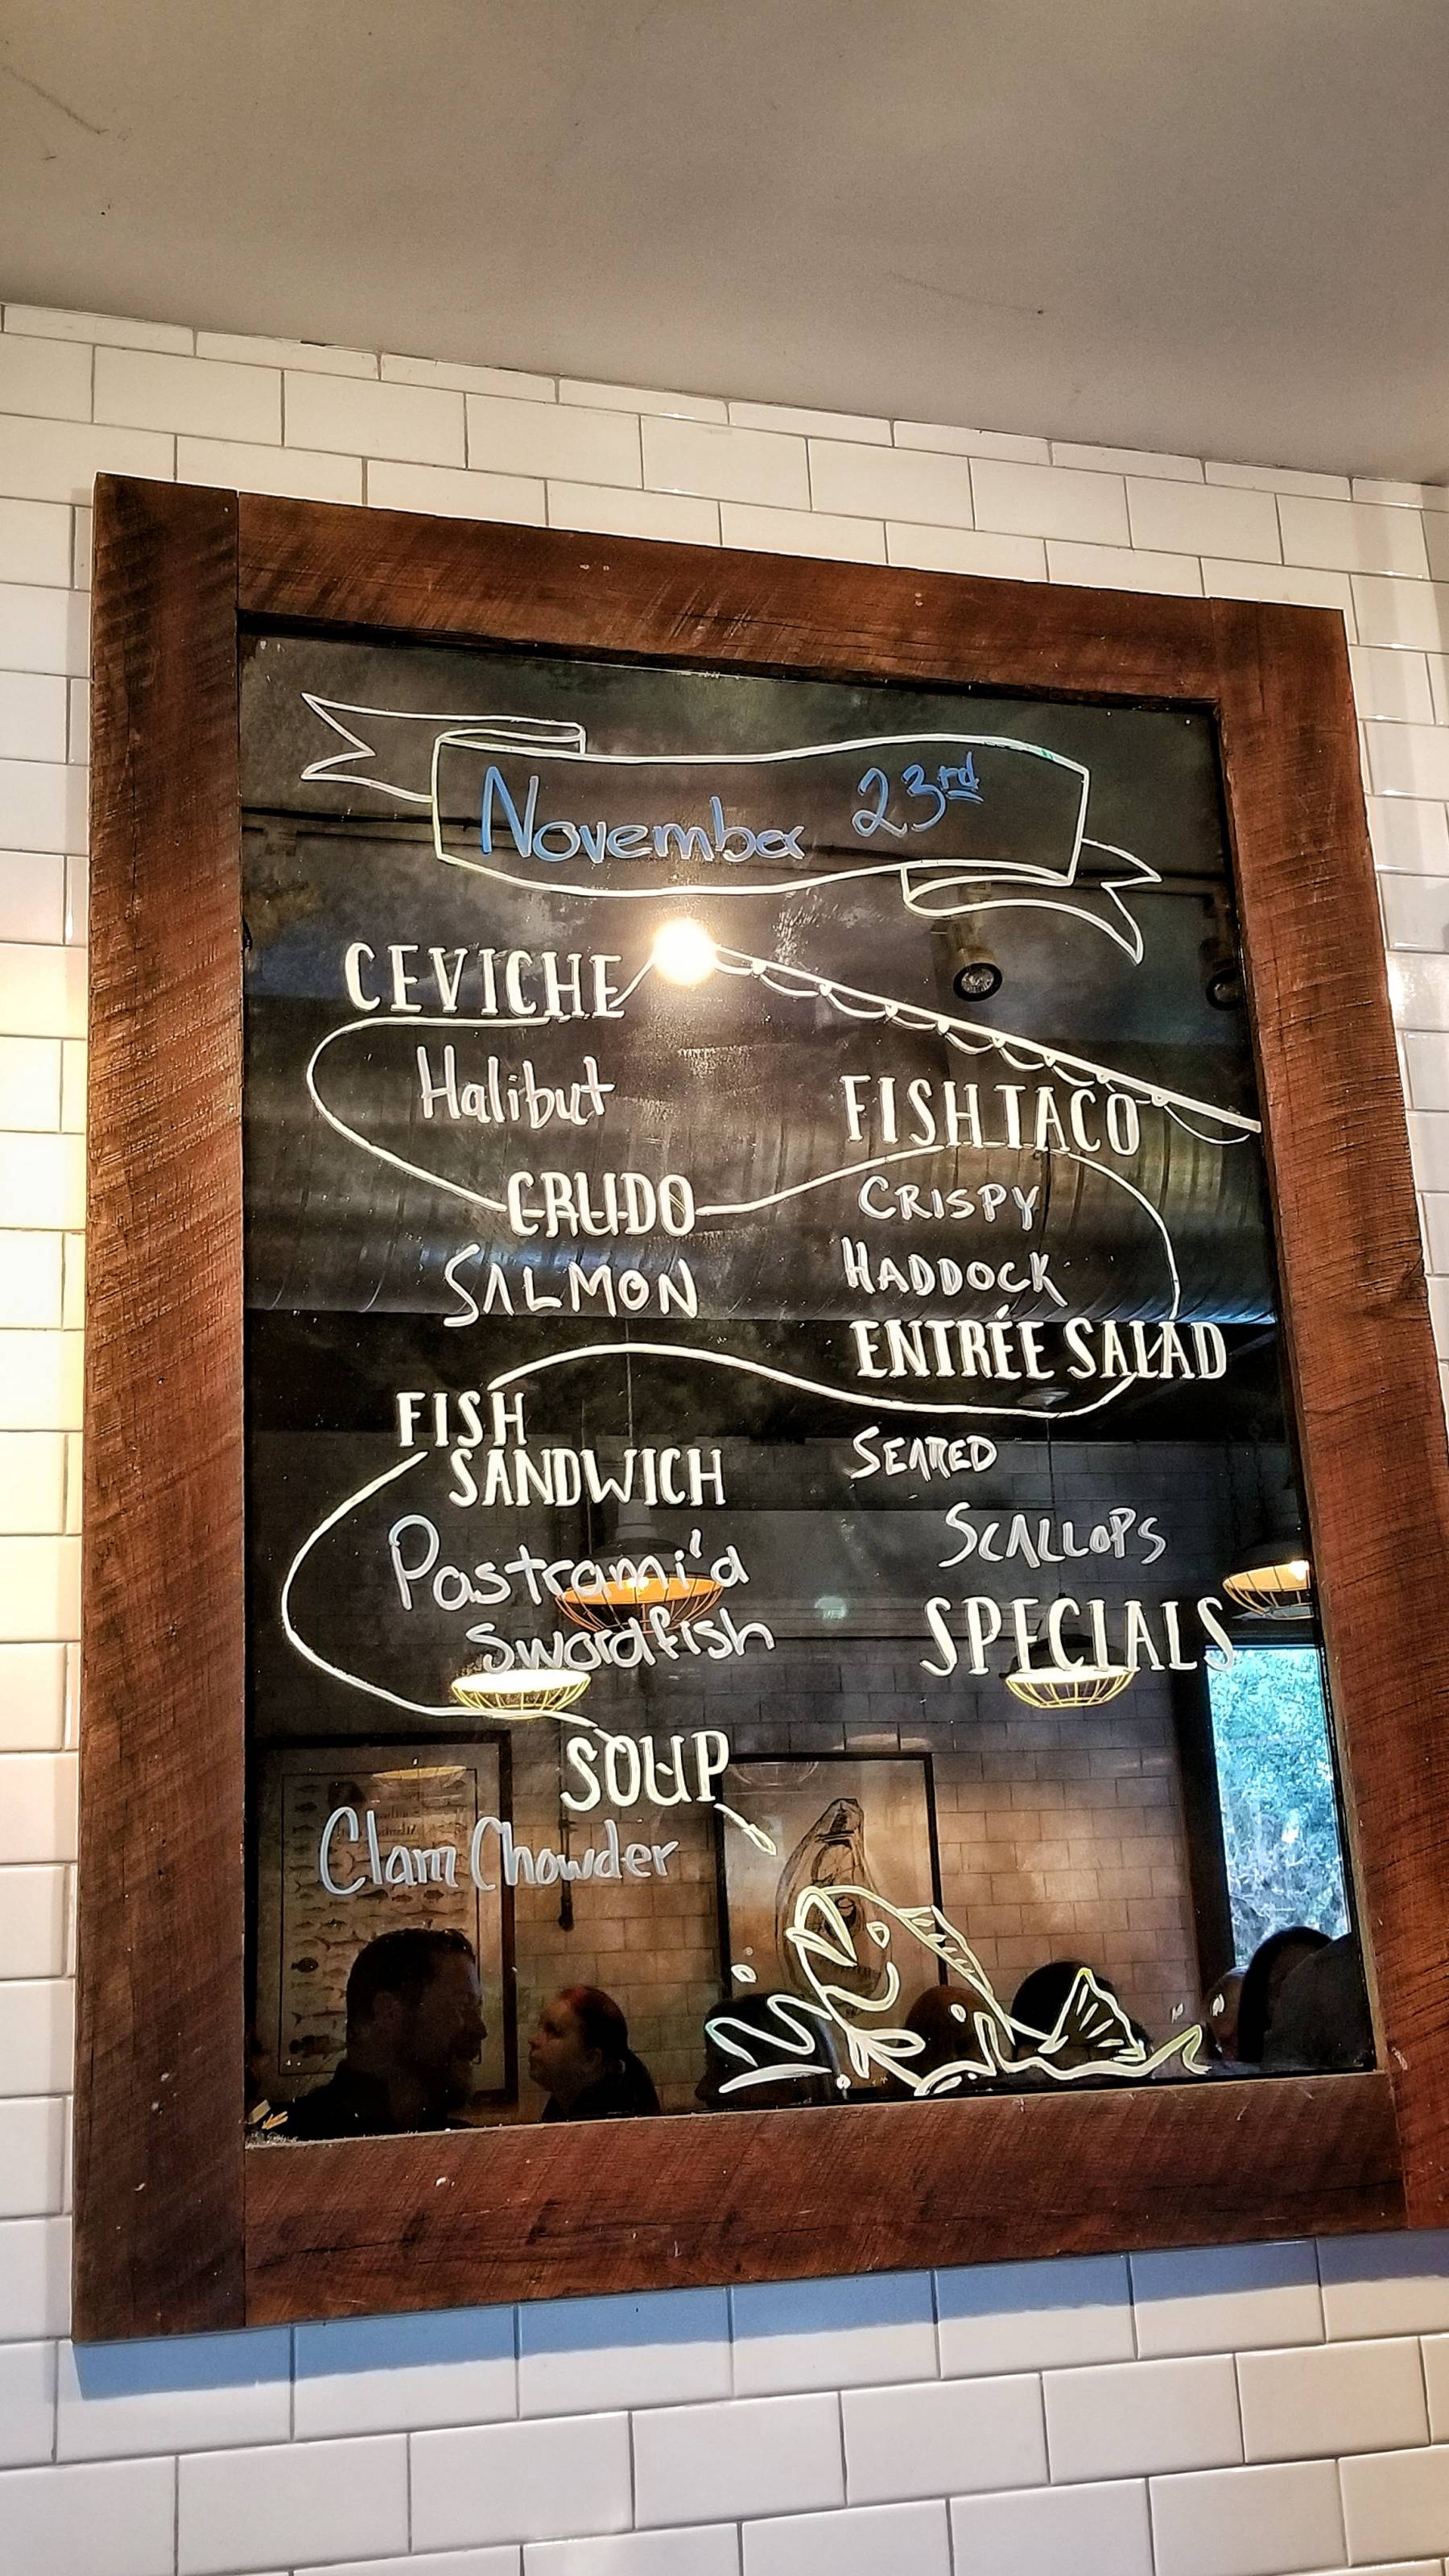 November 23rd
CEVICHE
Halibut
CRUDO
SALMON
FISH
SANDWICH
Pastrami'd
Swordfish
SOUP
Clam Chowder
FISH TACO
CRISPY
HADDOCK
ENTRÉE SALAD
SEARED
SCALLOPS
SPECIALS